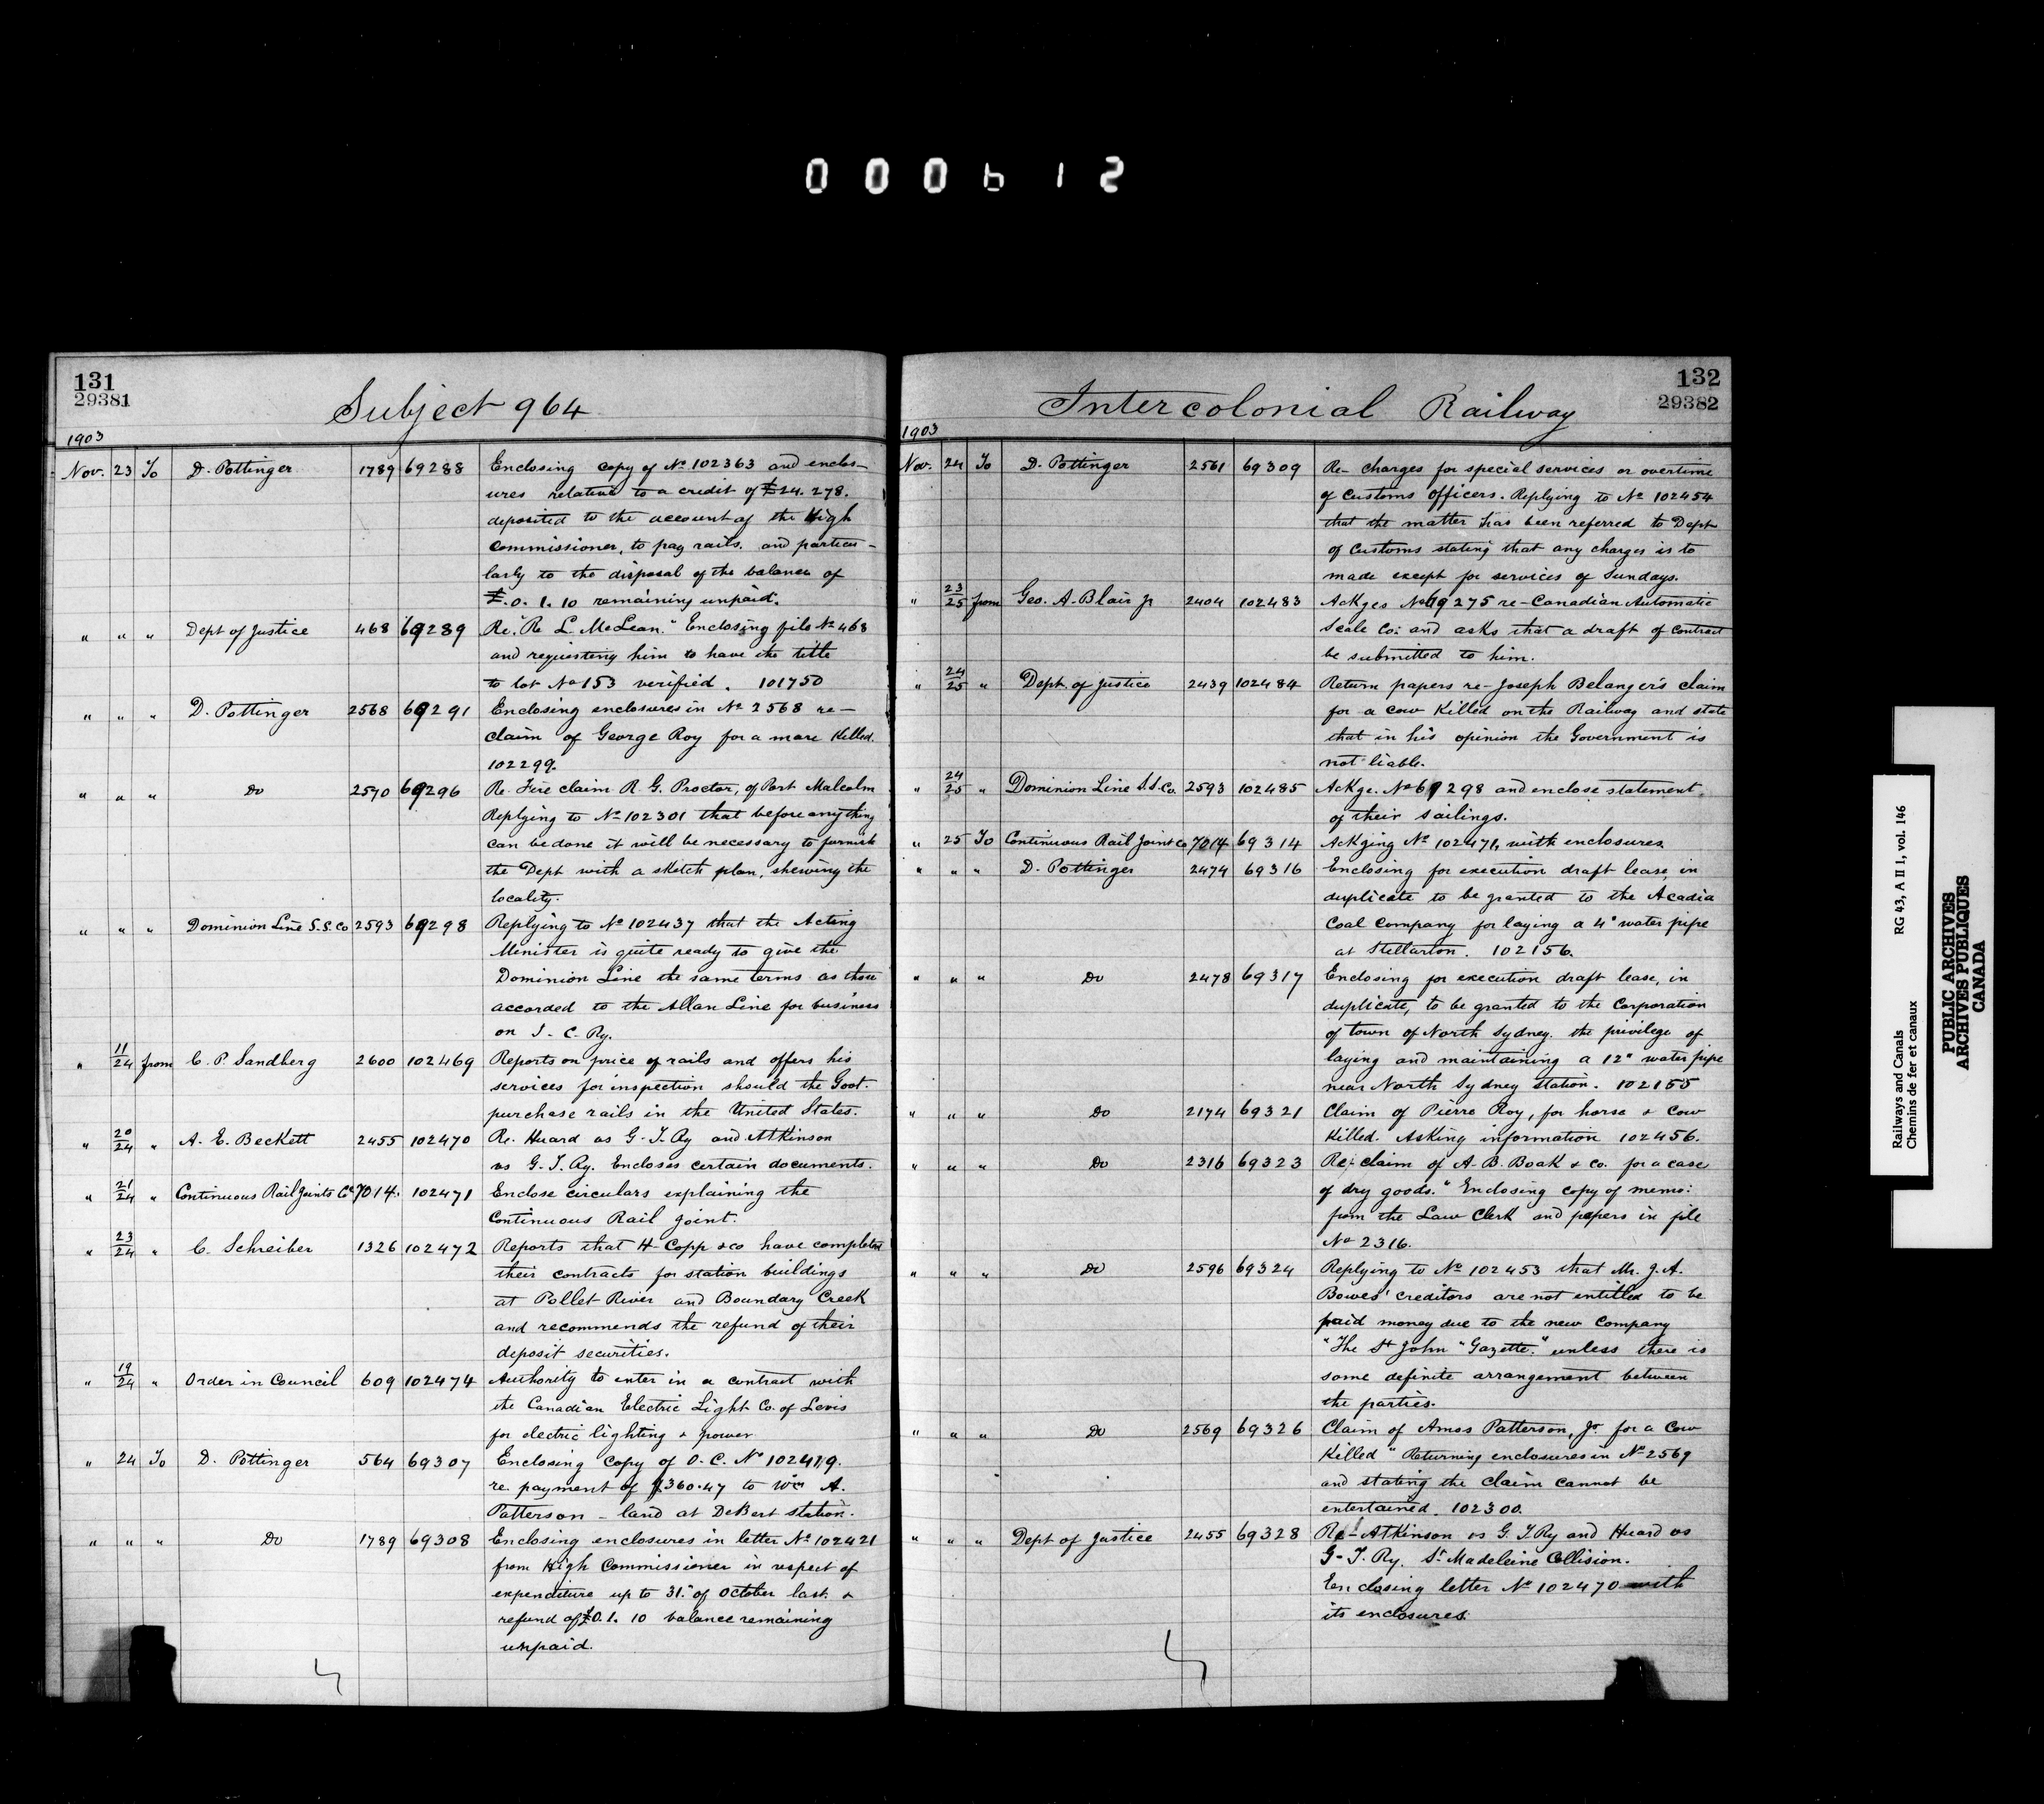 000612
131
29381
Subject 964
1903
Nov. 23 To D. Pottinger 1789 69288 Enclosing copy of No 102363 and enclos-
ures relative to a credit of £24. 278.
deposited to the account of the High
Commissioner, to pay rails. and particu-
larly to the disposal of the balance of
£.0. 1. 10 remaining unpaid.
" " " Dept of Justice 468 69289 Re. "Re L. McLean." Enclosing file No 468
and requesting him to have the title
to lot No 153 verified. 101750
" " " D. Pottinger 2568 69291 Enclosing enclosures in No 2568 re-
claim of George Roy for a mare killed.
102299.
" " " Do 2570 69296 Re. Fire claim R. G. Proctor, of Port Malcolm
Replying to No 102301 that before anything
can be done it will be necessary to furnish
the Dept with a sketch plan, shewing the
locality.
" " " Dominion Line S.S. Co 2593 69298 Replying to No 102437 that the Acting
Minister is quite ready to give the
Dominion Line the same terms as those
accorded to the Allan Line for business
on I. C. Ry.
" 11/24 from C. P. Sandberg 2600 102469 Reports on price of rails and offers his
services for inspection should the Govt.
purchase rails in the United States.
" 20/24 " A. E. Beckett 2455 102470 Re. Huard vs G. T. Ry and Atkinson
vs G. T. Ry. Encloses certain documents.
" 21/24 " Continuous Rail Joints Co 7014. 102471 Enclose circulars explaining the
Continuous Rail Joint.
" 23/24 " C. Schreiber 1326 102472 Reports that H. Copp & co have completed
their contracts for station buildings
at Pollet River and Boundary Creek
and recommends the refund of their
deposit securities.
" 19/24 " Order in Council 609 102474 Authority to enter in a contract with
the Canadian Electric Light Co. of Levis
for electric lighting & power
" 24 To D. Pottinger 564 69307 Enclosing copy of O. C. No 102419.
re payment of $360.47 to Wm A.
Patterson - land at DeBert Station.
" " " Do 1789 69308 Enclosing enclosures in letter No 102421
from High Commissioner in respect of
expenditure up to 31st of October last. &
refund of £0. 1. 10 balance remaining
unpaid.
132
29382
Intercolonial Railway
1903
Nov. 24 To D. Pottinger 2561 69309 Re- charges for special services or overtime
of Customs officers. Replying to No 102454
that the matter has been referred to Dept
of Customs stating that any charges is to
made except for services of Sundays.
" 23/25 from Geo. A. Blair Jr 2404 102483 Ackges No 69275 re- Canadian Automatic
Scale Co: and asks that a draft of contract
be submitted to him.
" 24/25 " Dept. of Justice 2439 102484 Return papers re- Joseph Belanger's claim
for a cow killed on the Railway and state
that in his opinion the Government is
not liable.
" 24/25 " Dominion Line S.S. Co. 2593 102485 Ackge. No 69298 and enclose statement
of their sailings.
" 25 To Continuous Rail Joint Co 7014 69314 Ackging No 102471, with enclosures.
" " " D. Pottinger 2474 69316 Enclosing for execution draft lease, in
duplicate to be granted to the Acadia
Coal Company for laying a 4" water pipe
at Stellarton. 102156.
" " " Do 2478 69317 Enclosing for execution draft lease, in
duplicate, to be granted to the Corporation
of town of North Sydney. the privilege of
laying and maintaining a 12" water pipe
near North Sydney station. 102155
" " " Do 2174 69321 Claim of Pierre Roy, for horse & cow
killed. Asking information 102456.
" " " Do 2316 69323 Re- claim of A. B. Boak & Co. for a case
of dry goods." Enclosing copy of memo:
from the Law Clerk and papers in file
No 2316.
" " " Do 2596 69324 Replying to No 102453 that Mr. J. A.
Bowes' creditors are not entitled to be
paid money due to the new Company
"The St John "Gazette." unless there is
some definite arrangement between
the parties.
" " " Do 2569 69326 Claim of Amos Patterson, Jr. for a cow
killed" Returning enclosures in No 2569
and stating the claim cannot be
entertained. 102300.
" " " Dept of Justice 2455 69328 Re- Atkinson vs G. T. Ry and Huard vs
G. T. Ry. St Madeleine Collision.
Enclosing letter No 102470 with
its enclosures.
Railways and Canals RG 43, A II 1, vol. 146
Chemins de fer et canaux
PUBLIC ARCHIVES
ARCHIVES PUBLIQUES
CANADA